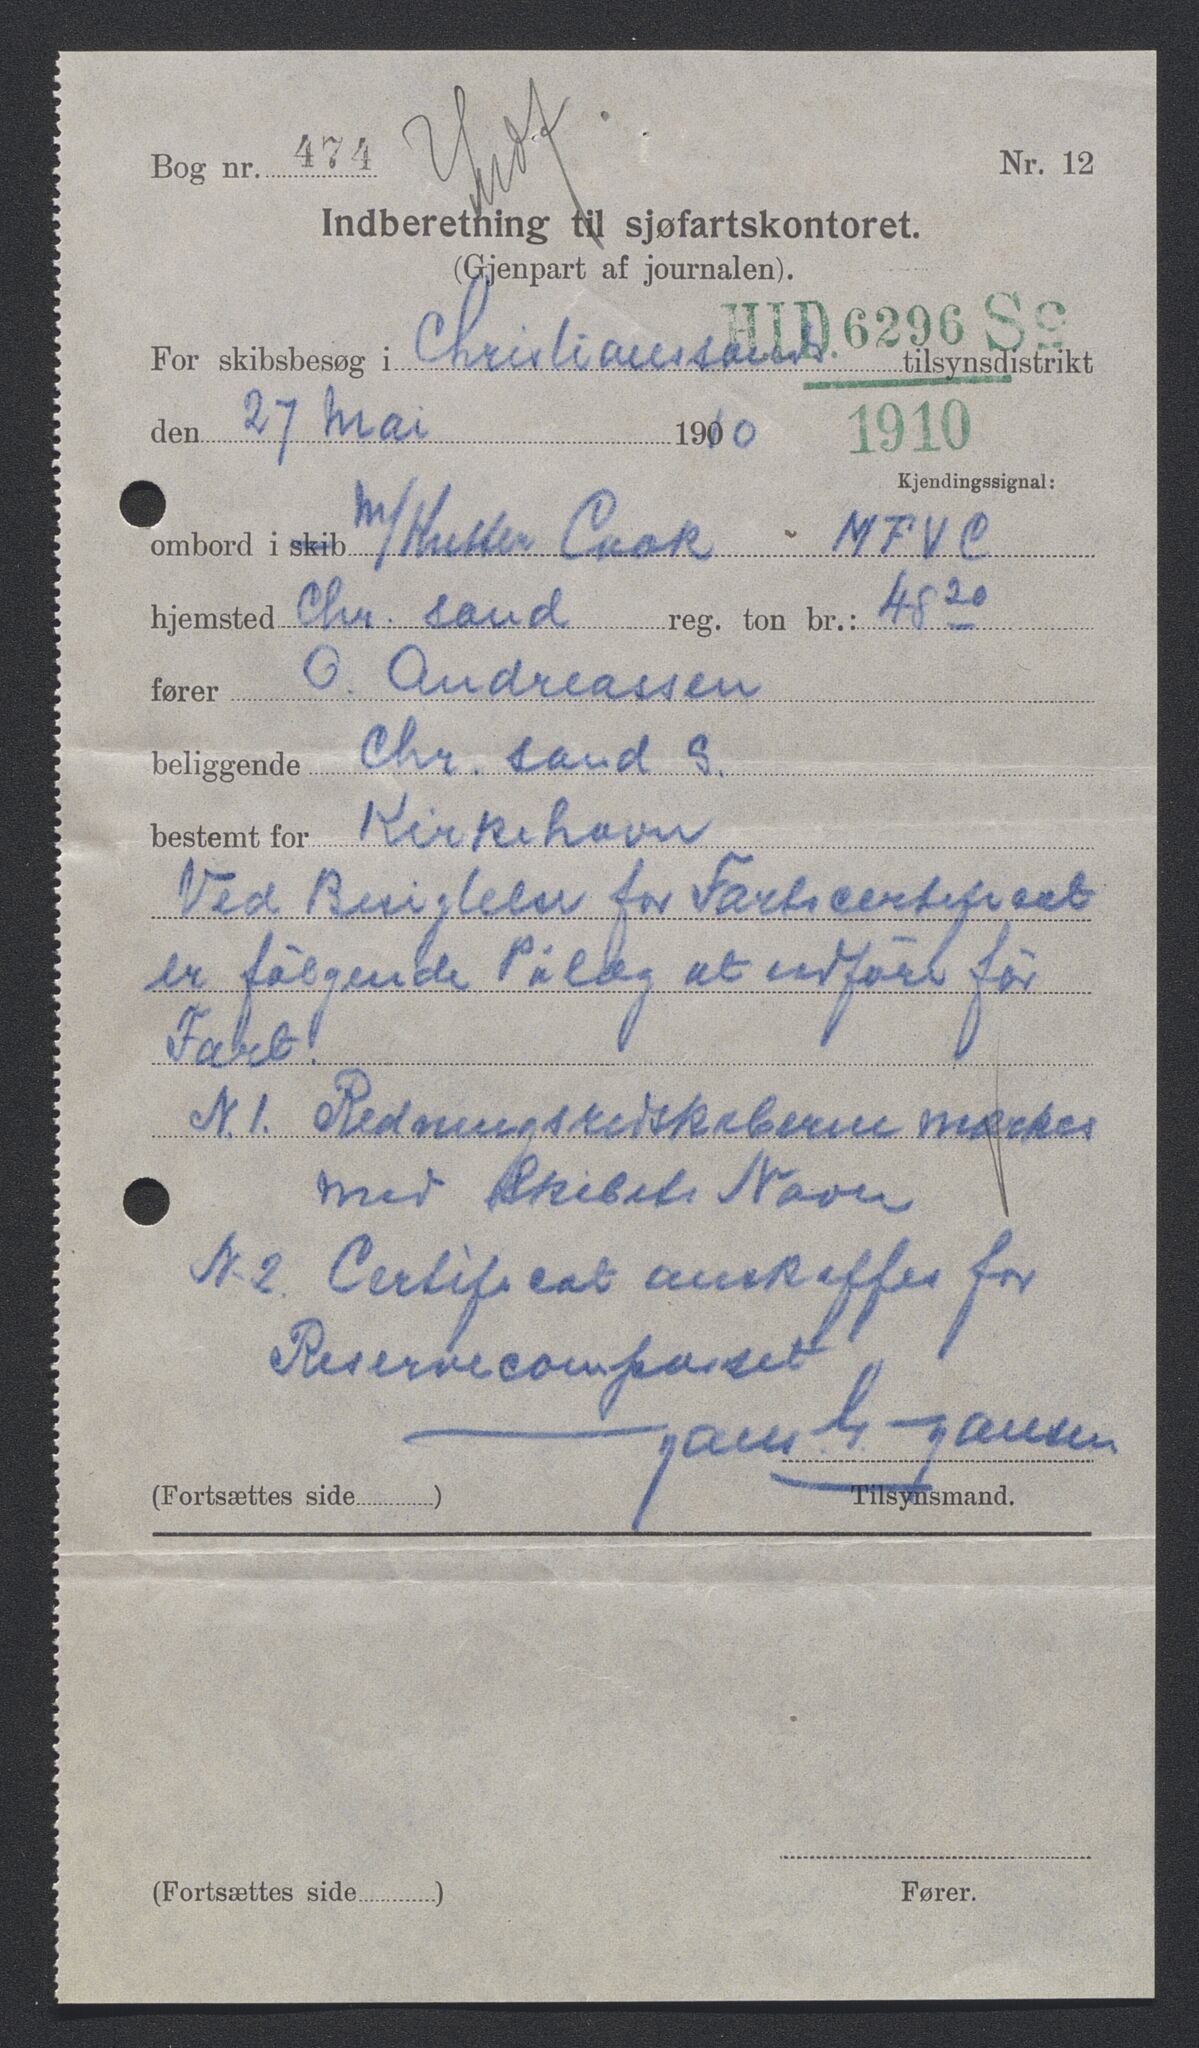 Bog nr. 474
Nr. 12
Indberetning til sjøfartskontoret.
(Gjenpart af journalen).
HID. 6296 Sc
For skibsbesøg i Christianssands tilsynsdistrikt
den 27 Mai 1910
1910
Kjendingssignal:
ombord i skib M/Kutter Cook MFVC
hjemsted Chr. sand reg. ton br.: 48 20
fører O. Andreassen
beliggende Chr. sand S.
bestemt for Kirkehavn
Ved Besigtelse for Fartscertificat
er følgende Pålæg at udføre før
Fart.
N. 1. Redningsredskaberne mærkes
med Skibets Navn
N. 2. Certificat anskaffes for
Reservecompasset
Jansen
(Fortsættes side )
Tilsynsmand.
(Fortsættes side )
Fører.